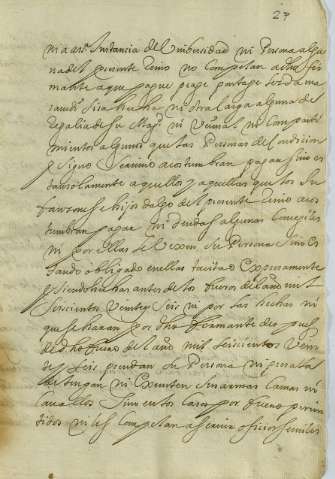 27
ni a otra Instancia de Universidad ni Persona algu
na del presente Reino no Compelan a dho fir
mante a que pague peage portage lezda ma
ravedi sisa hueste ni otra carga alguna de
regalia de su Magd ni Vecinal ni Comparti
mientos algunos que las Personas del condicion
y signo servicio acostumbran pagar sino es
tan solamente aquellos y aquellas que los In
fanzones hijosdalgo del presente Reino acos
tumbran pagar Ni deudas algunas Concegiles
ni por ellas de su Persona sino es
tando obligado en ellas tacita o Expresamente
y siendo hechas antes de los fueros del año mil
seiscientos Veinte y seis ni por las hechas ni
que se haran por dho firmante despues
del dho fuero del año mil seiscientos Vein
te y seis prendan su Persona ni penales
detengan ni Executen sus armas Camas ni
Cavallos sino en los Casos por fuero permi
tidos ni les Compelan a servir oficios serviles